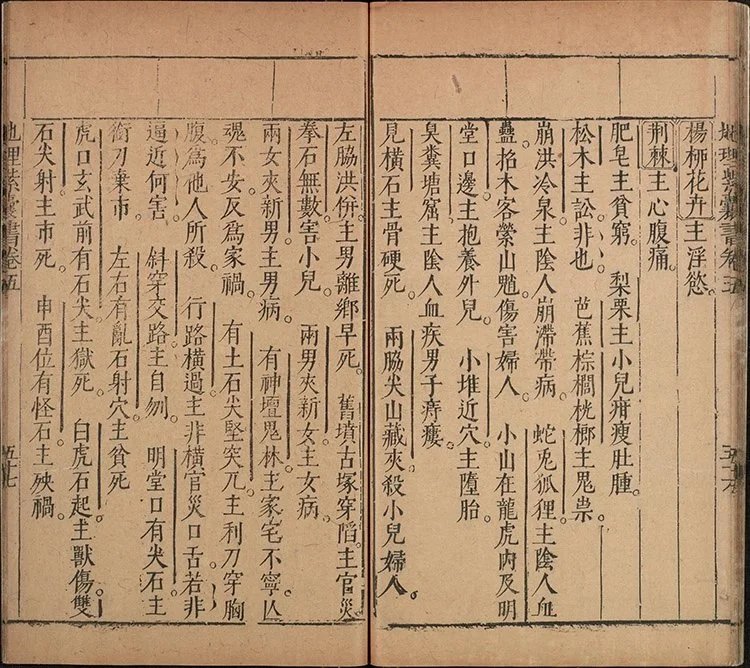 地理紫囊書卷五 五十六
楊柳花卉主浮慾。
荆棘主心腹痛。
肥皂主貧窮。 梨栗主小兒疳瘦肚腫。
松木主訟非也。 芭蕉棕櫚桄榔主鬼祟。
崩洪冷泉主陰人崩滯帶病。 蛇兎狐狸主陰人血
蠱。掐木客縈山魈傷害婦人。 小山在龍虎內及明
堂口邊。主抱養外兒。 小堆近穴主墮胎
臭糞塘窟主陰人血疾男子痔瘻。
見橫石主骨硬死。 兩脇尖山藏夾殺小兒婦人。
左脇洪併主男離鄉早死。 舊墳古塚穿陷主官災。
拳石無數害小兒。 兩男夾新女主女病
兩女夾新男主男病。 有神壇鬼林主家宅不寧亾
魂不安反爲家禍。 有土石尖堅突兀主利刀穿胸
腹爲他人所殺。 行路橫過主非橫官災口舌若非
逼近何害。 斜穿交路主自刎。 明堂口有尖石主
銜刀棄市。 左右有亂石射穴主貧死
虎口玄武前有石尖主獄死。 白虎石起主獸傷雙
石尖射主市死。 申酉位有怪石主殃禍。
地理紫囊書卷五 五十七